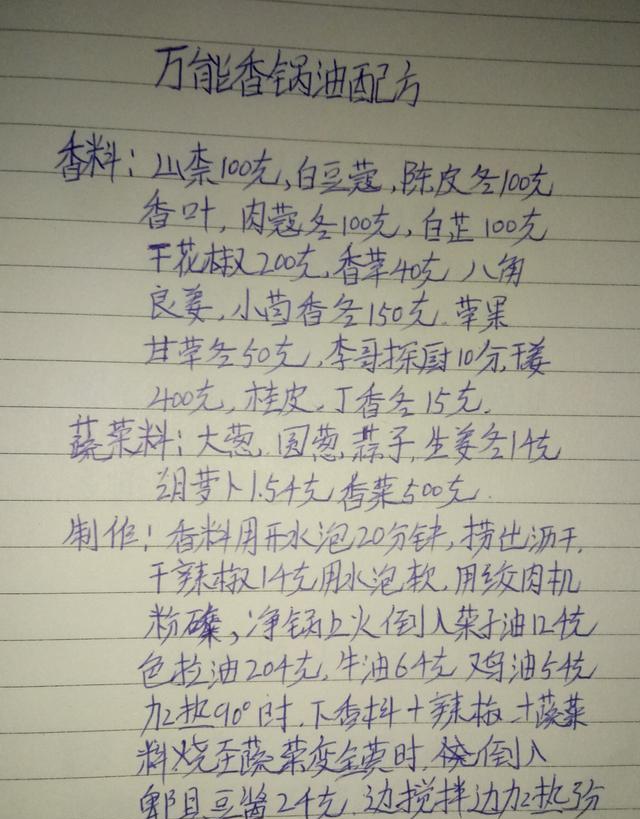 万能香锅油配方
香料：山柰100克，白豆蔻，陈皮冬100克
香叶，肉蔻冬100克，白芷100克
干花椒200克，香草40克 八角
良姜，小茴香冬150克．草果
甘草冬50克，李哥探厨10分，干姜
400克，桂皮．丁香冬15克．
蔬菜料；大葱．圆葱．蒜子，生姜冬1千克
胡萝卜1.5千克 香菜500克．
制作！香料用开水泡20分钟，捞出沥干．
干辣椒1千克用水泡软．用绞肉机
粉碎，净锅上火倒入菜子油12千克
色拉油20千克，牛油6千克 鸡油5千克
加热90°时．下香料＋辣椒＋蔬菜
料烧至蔬菜变金黄时．倒入
郫县豆酱2千克．边搅拌边加热